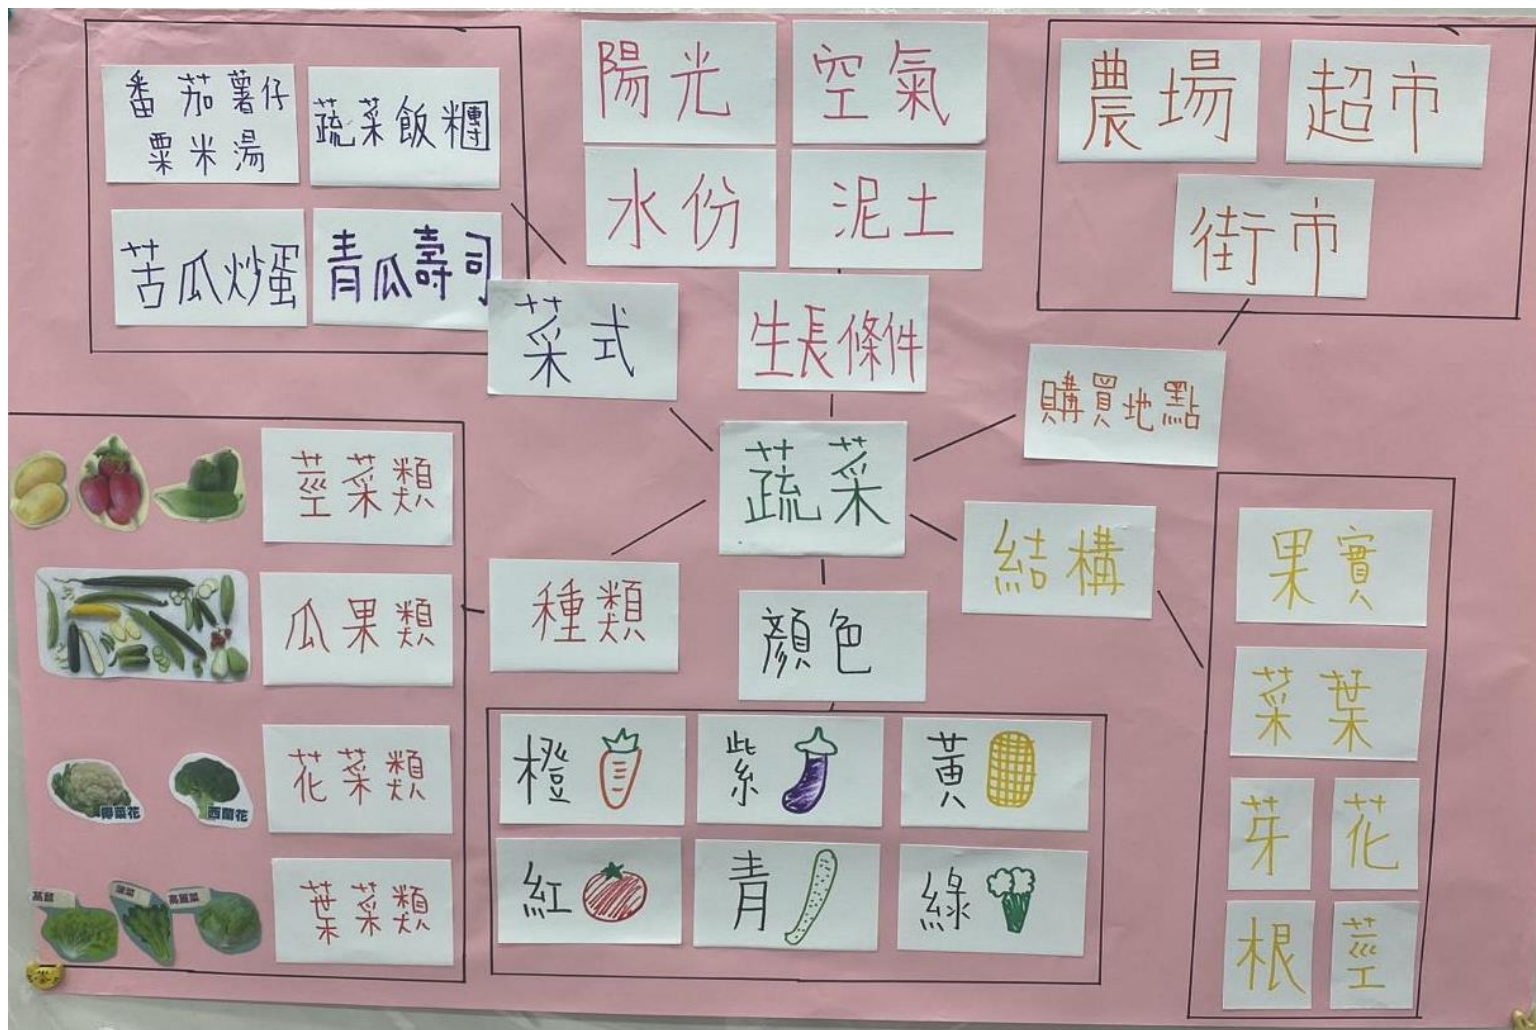 番茄薯仔
粟米湯
蔬菜飯糰
苦瓜炒蛋
青瓜壽司
菜式
陽光
空氣
水份
泥土
生長條件
農場
超市
街市
購買地點
蔬菜
莖菜類
瓜果類
花菜類
椰菜花
西蘭花
葉菜類
菠菜
種類
顏色
橙
紫
黃
紅
青
綠
結構
果實
菜葉
芽
花
根
莖